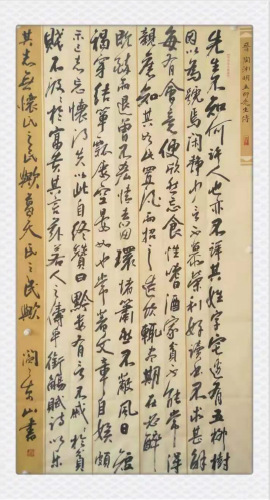 晉陶淵明五柳先生傳
先生不知何許人也亦不詳其姓字宅邊有五柳樹
因以為號焉閑靜少言不慕榮利好讀書不求甚解
每有會意便欣然忘食性嗜酒家貧不能常得
親舊知其如此或置酒而招之造飲輒盡期在必醉
既醉而退曾不吝情去留環堵蕭然不蔽風日短
褐穿結簞瓢屢空晏如也常著文章自娛頗
示己志忘懷得失以此自終贊曰黔婁有言不戚戚於貧
賤不汲汲於富貴其言茲若人之儔乎銜觴賦詩以樂
其志無懷氏之民歟葛天氏之民歟 山書